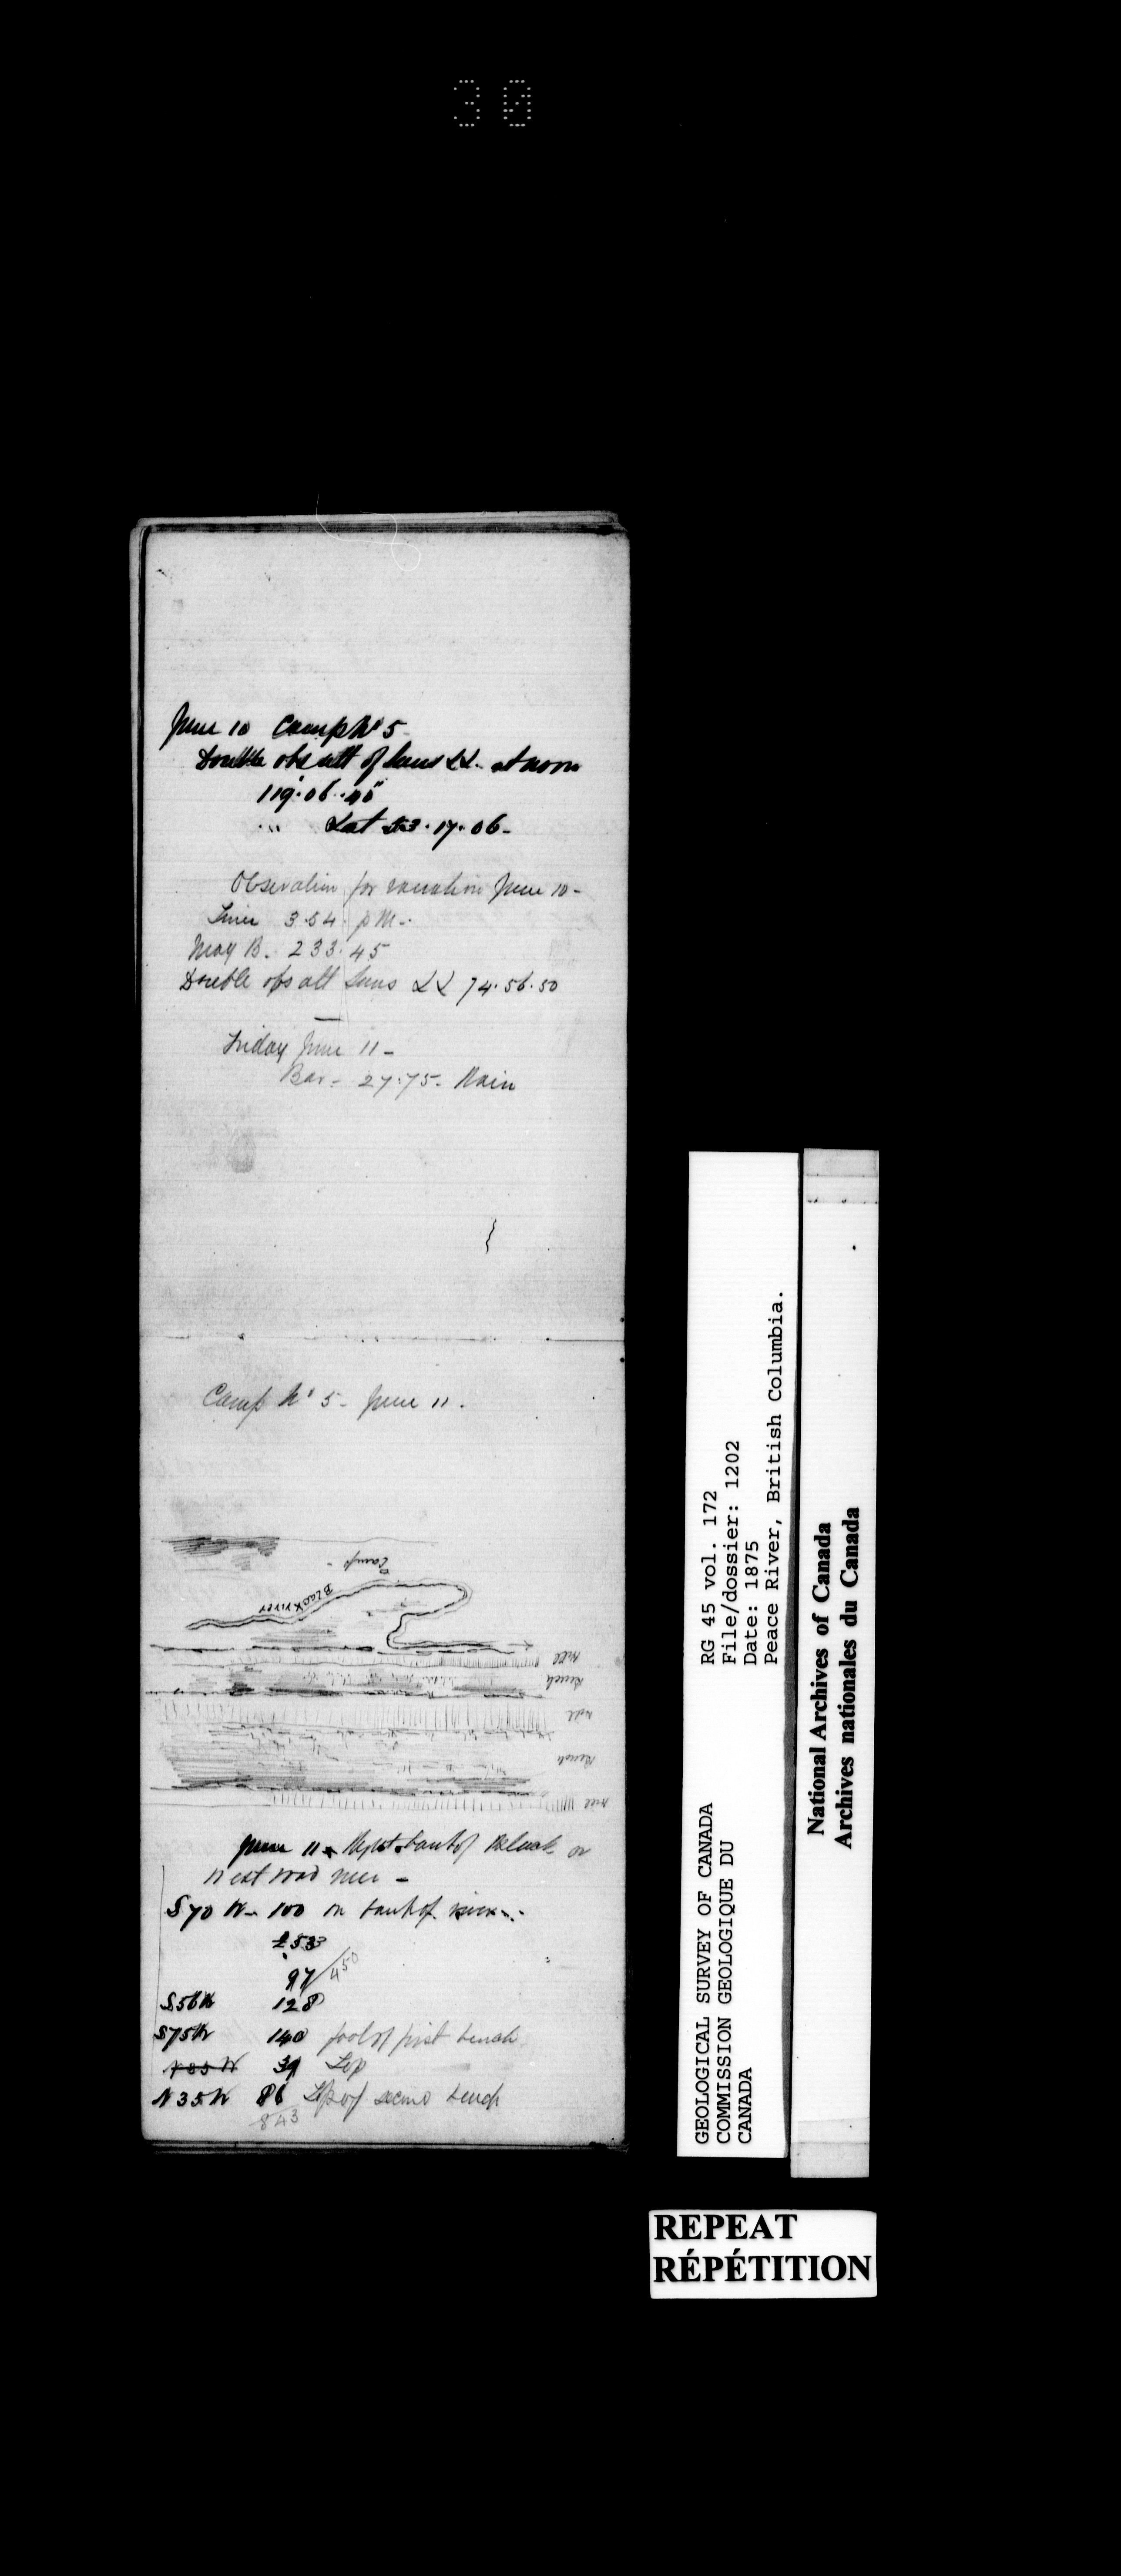 30
June 10 Camp No 5-
Double obs alt of Suns LL. at noon
119.06.40"
... Lat 53.17.06-
Observation for variation June 10-
Time 3.54. p M-.
Mag B. 233.45
Double obs alt Suns LL 74.56.50
Friday June 11-
Bar- 27.75. Rain
Camp No 5- June 11.
Camp -
Black river
Hill
Bench
Hill
Bench
Hill
June 11. Right bank of Black or
West road river -
S70 W- 100 on bank of river...
253
97/450
S56W 128
S75W 140 foot of first bench
N85W 39 Top
N35W 86 Top of second bench
843
RG 45 vol. 172
File/dossier: 1202
Date: 1875
Peace River, British Columbia.
GEOLOGICAL SURVEY OF CANADA
COMMISSION GEOLOGIQUE DU
CANADA
National Archives of Canada
Archives nationales du Canada
REPEAT
RÉPÉTITION